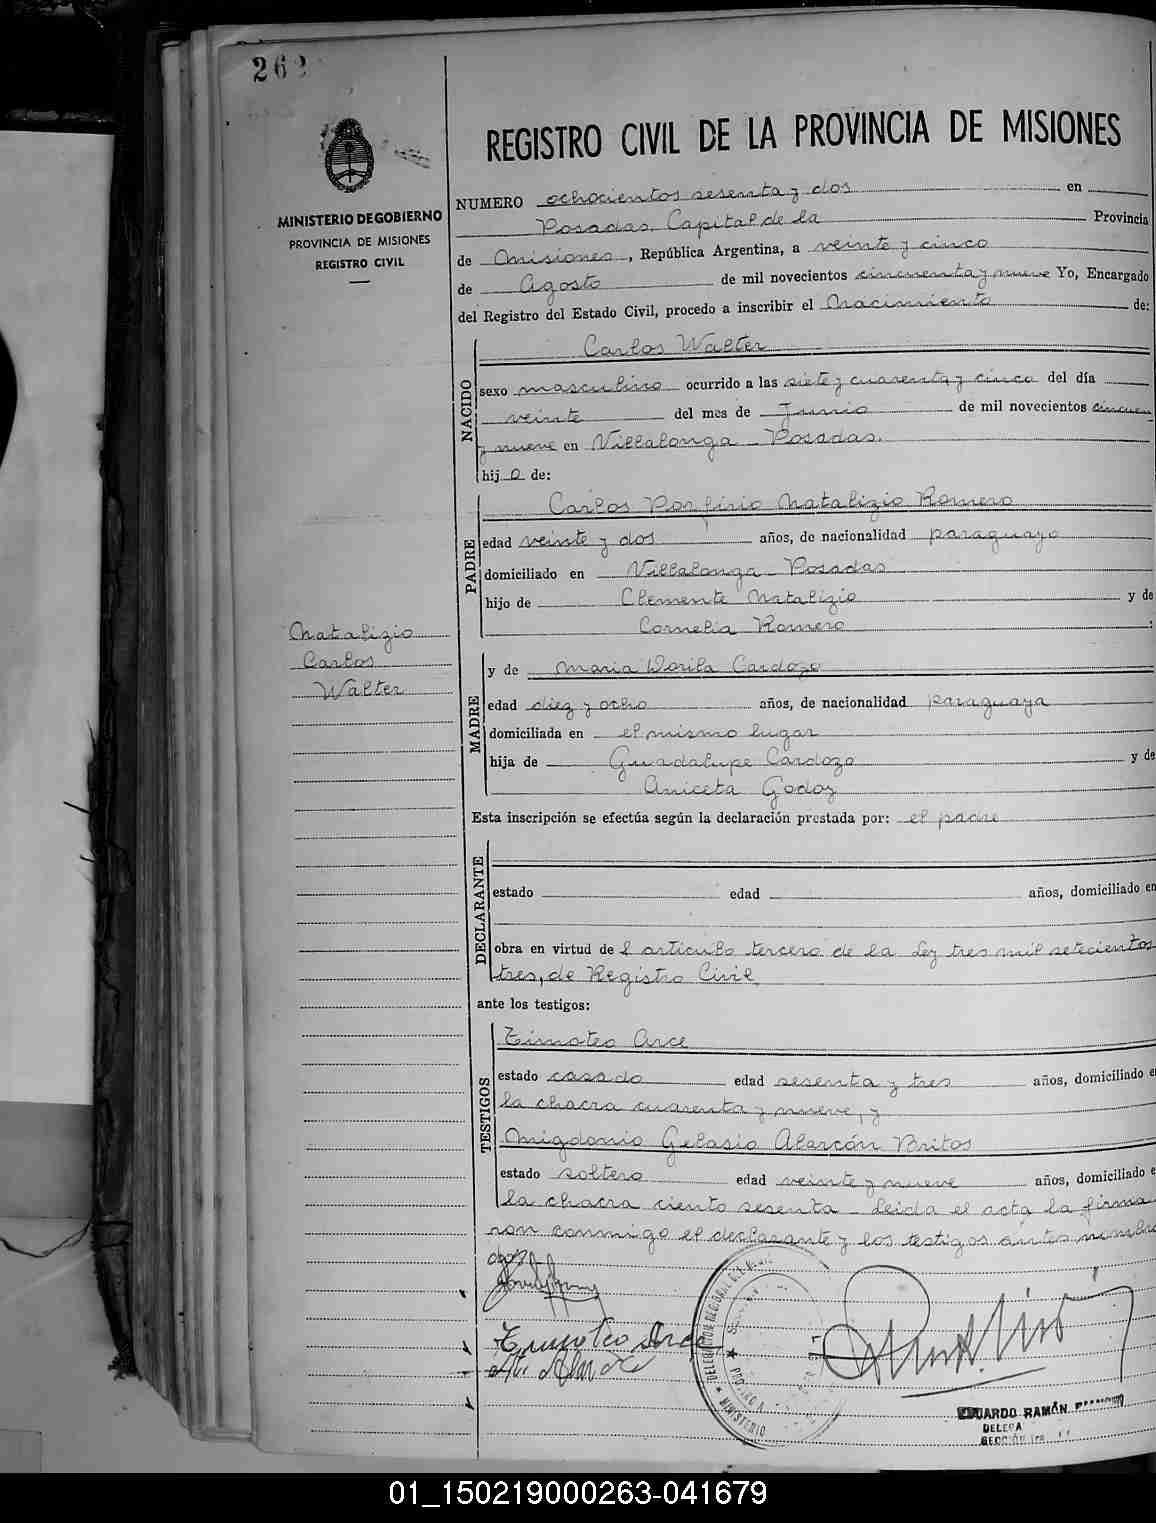 262
REGISTRO CIVIL DE LA PROVINCIA DE MISIONES
MINISTERIO DE GOBIERNO
PROVINCIA DE MISIONES
REGISTRO CIVIL
NUMERO ochocientos sesenta y dos en
Posadas, Capital de la Provincia
de Misiones, República Argentina, a veinte y cinco
de Agosto de mil novecientos cincuenta y nueve Yo, Encargado
del Registro del Estado Civil, procedo a inscribir el Nacimiento de:
NACIDO
Carlos Walter
sexo masculino ocurrido a las siete y cuarenta y cinco del día
veinte del mes de Junio de mil novecientos cincuen
y nueve en Villalonga - Posadas.
hij o de:
PADRE
Carlos Porfirio Natalizio Romero
edad veinte y dos años, de nacionalidad paraguayo
domiciliado en Villalonga - Posadas
hijo de Clemente Natalizio y de
Cornelia Romero :
Natalizio
Carlos
Walter
MADRE
y de Maria Dorila Cardozo
edad diez y ocho años, de nacionalidad paraguaya
domiciliada en el mismo lugar
hija de Guadalupe Cardozo y de
Aniceta Godoy
Esta inscripción se efectúa según la declaración prestada por: el padre
DECLARANTE
estado edad años, domiciliado en
obra en virtud de l articulo tercero de la Ley tres mil setecientos
tres, de Registro Civil
ante los testigos:
TESTIGOS
Timoteo Arce
estado casado edad sesenta y tres años, domiciliado e
la chacra cuarenta y nueve, y
Migdonio Gelasio Alarcón Britos
estado soltero edad veinte y nueve años, domiciliado e
la chacra ciento sesenta - Leida el acta la firma
ron conmigo el declarante y los testigos antes nombra
dos.
Timoteo Arce
DELEGACION
MINISTERIO
EDUARDO RAMÓN
01_150219000263-041679